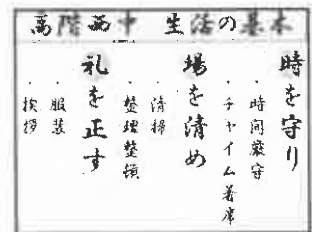 高階西中 生活の基本
時を守り
・時間厳守
・チャイム着席
場を清め
・清掃
・整理整頓
礼を正す
・服装
・挨拶